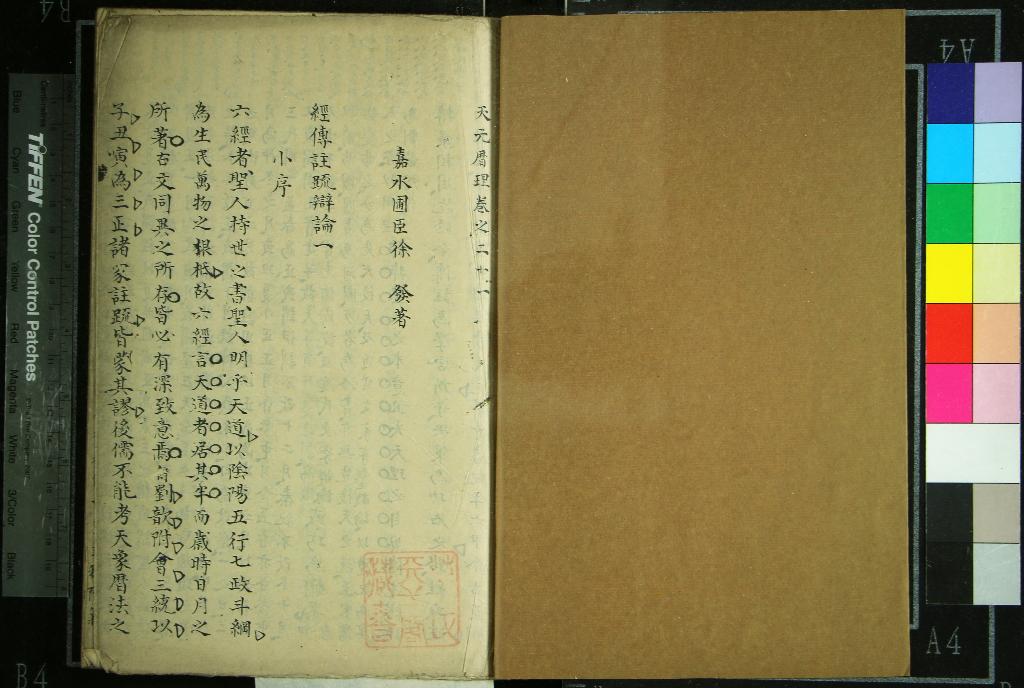 天元曆理卷之二十一
嘉水圃臣徐 發著
經傳註䟽辯論一
小序
六經者聖人持世之書聖人明乎天道以陰陽五行七政斗綱
為生民萬物之根柢故六經言天道者居其半而歲時日月之
所著古文同異之所存皆必有深致意焉自劉歆附會三統以
子丑寅為三正諸家註䟽皆蒙其謬後儒不能考天象曆法之
TIFFEN Color Control Patches
Blue Cyan Green Yellow Red Magenta White 3/Color Black
A4
A4
B4